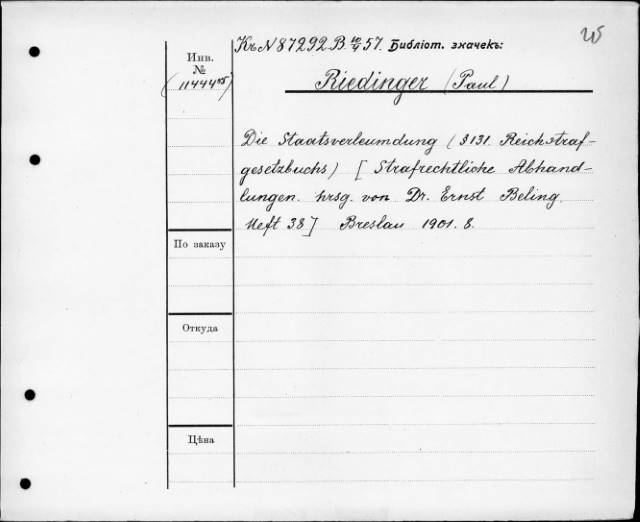 Къ N 87292. В. 10/V 57. Библіот. значекъ:
Инв.
№
(11444 05)
Riedinger (Paul)
Die Staatsverleumdung (§ 131. Reichstraf-
gesetzbuchs) [Strafrechtliche Abhand-
lungen. hrsg. von Dr. Ernst Beling.
Heft 38] Breslau 1901. 8.
По заказу
Откуда
Цѣна